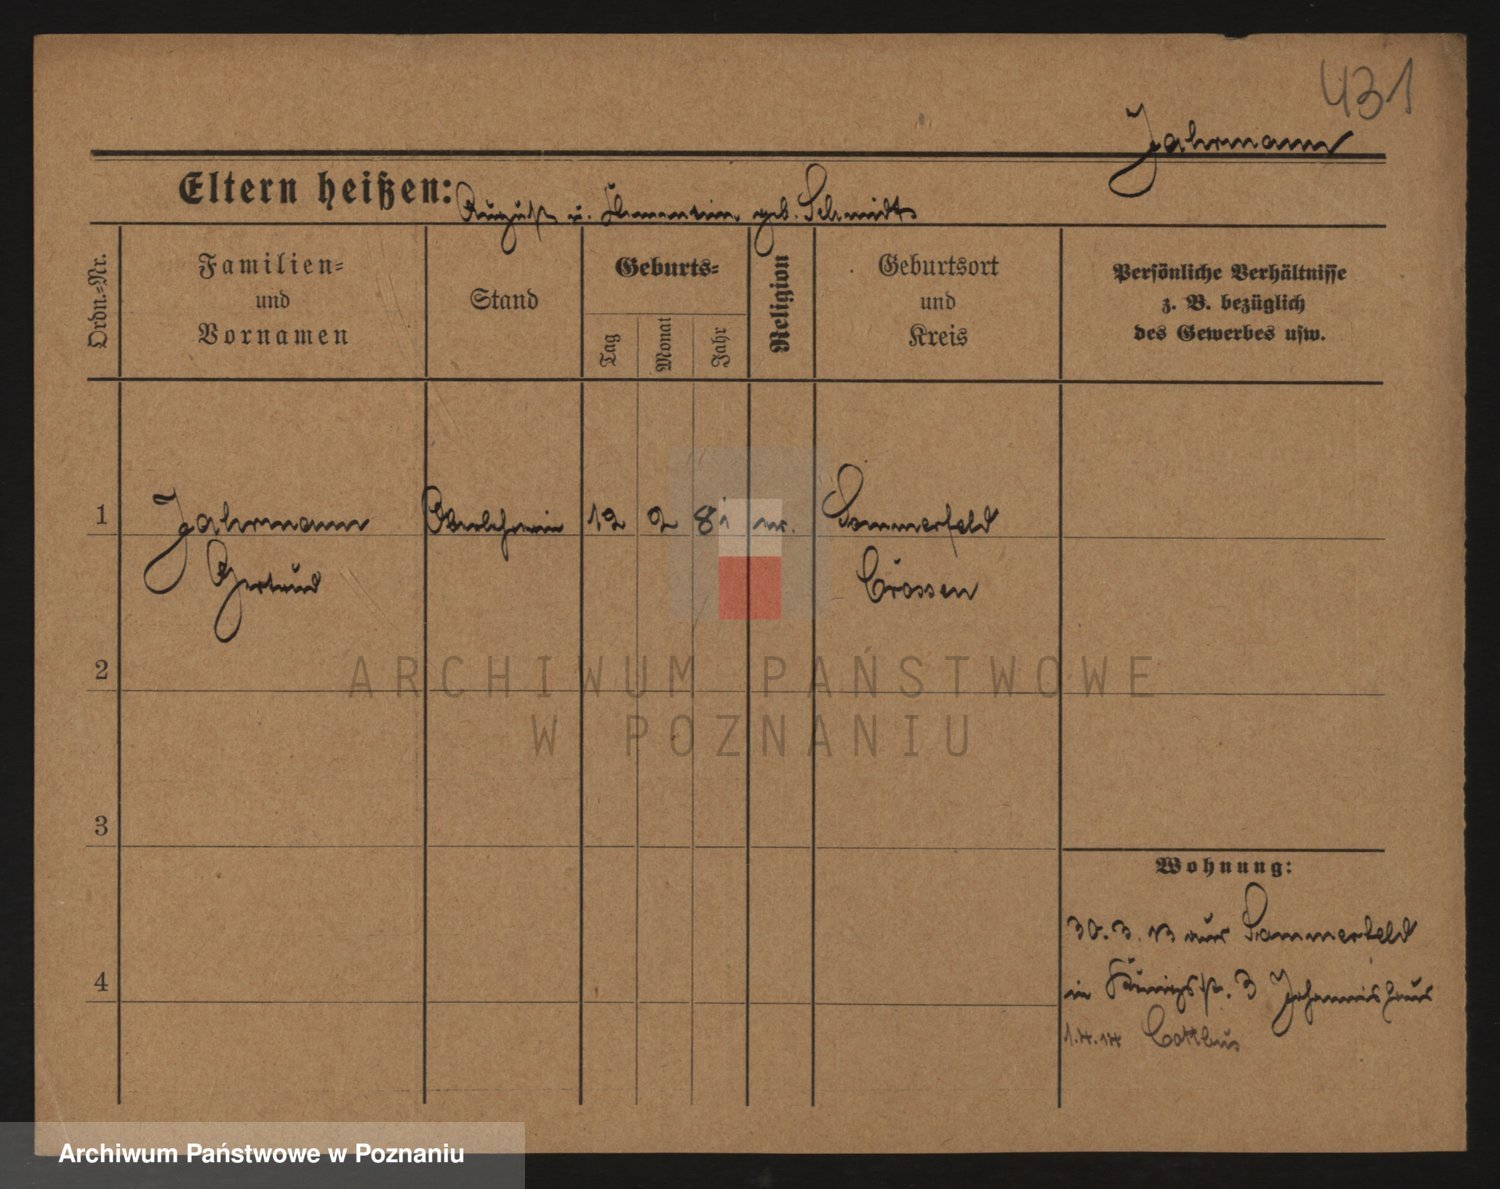 431
Jahrmann
Eltern heißen: August u. geb. Schmidt
Ordn.-Nr.
Familien-
und
Vornamen
Stand
Geburts-
Tag
Monat
Jahr
Religion
Geburtsort
und
Kreis
Persönliche Verhältnisse
z. B. bezüglich
des Gewerbes usw.
1 Jahrmann Oberlehrerin 12 2 81 Sommerfeld
Gertrud Crossen
2
3
4
ARCHIWUM PAŃSTWOWE
W POZNANIU
Wohnung:
30.3.13 aus Sommerfeld
in Königspl. 3 Johannishaus
1.4.14 Cottbus
Archiwum Państwowe w Poznaniu